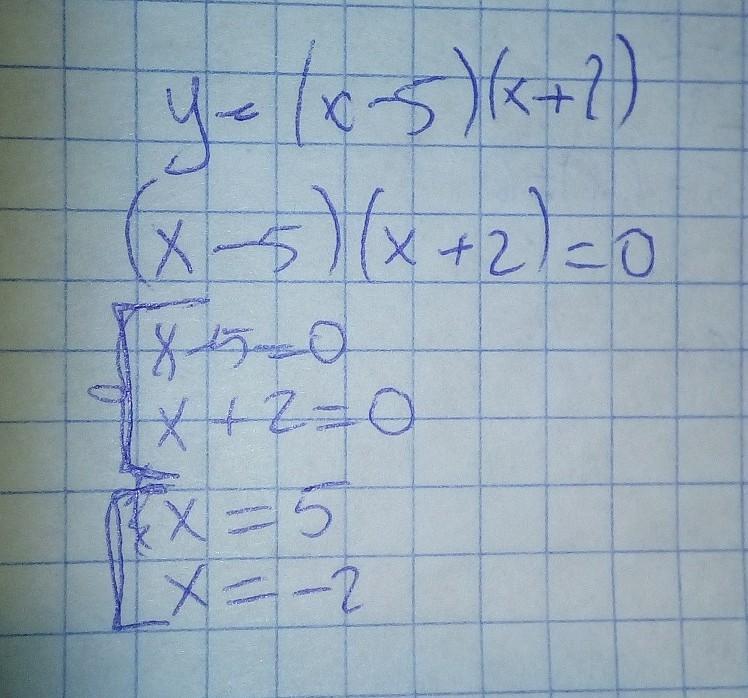 y = (x-5)(x+2)
(x-5)(x+2)=0
x-5=0
x+2=0
x=5
x=-2